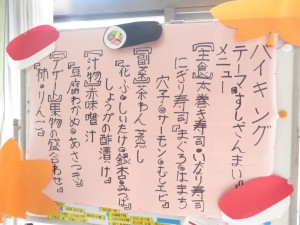 バイキング
テーマ『すしざんまい』
メニュー
【主食】太巻き寿司・いなり寿司
にぎり寿司『まぐろ・はまち
穴子・サーモン・むしエビ』
【副菜】茶わん蒸し
『花ふ・しいたけ・銀杏・みつば』
しょうがの酢漬け
【汁物】赤味噌汁
『豆腐・わかめ・あさつき』
【デザート】果物の盛合わせ
『柿・りんご』